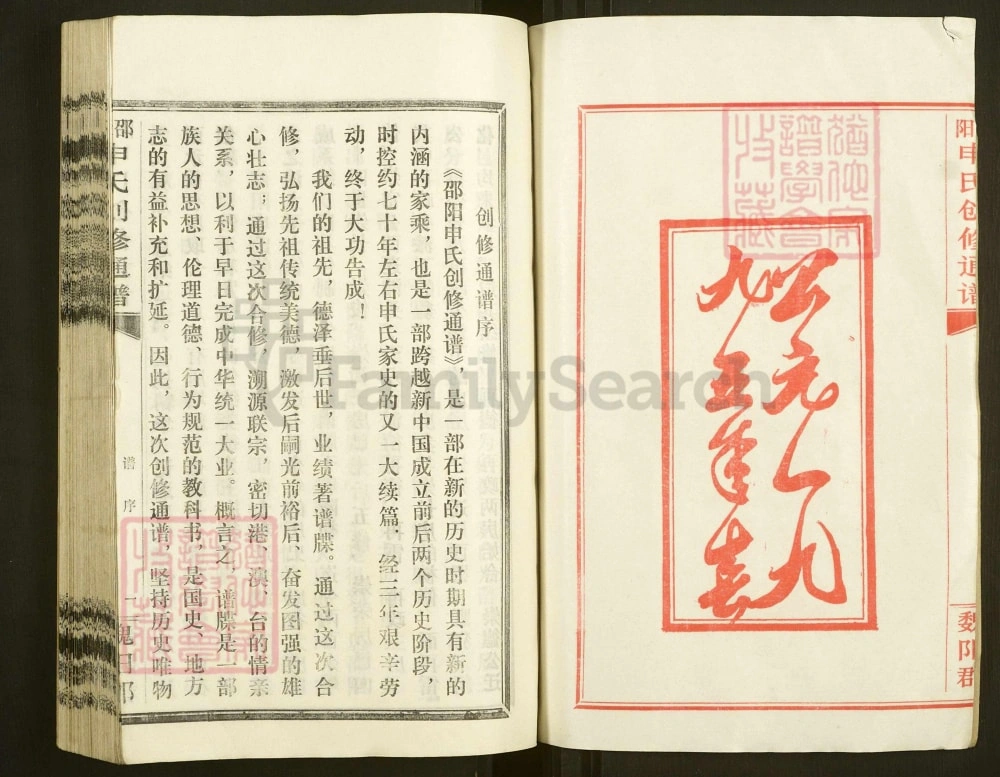 阳申氏创修通谱
魏阳群
公元一九
九五年春
犹他家谱学会收藏
创修通谱序
《邵阳申氏创修通谱》，是一部在新的历史时期具有新的
内涵的家乘，也是一部跨越新中国成立前后两个历史阶段，
时控约七十年左右申氏家史的又一大续篇，经三年艰辛劳
动，终于大功告成！
我们的祖先，德泽垂后世，业绩著谱牒。通过这次合
修，弘扬先祖传统美德，激发后嗣光前裕后、奋发图强的雄
心壮志，通过这次合修，溯源联宗，密切港、澳、台的情亲
关系，以利于早日完成中华统一大业。概言之，谱牒是一部
族人的思想、伦理道德、行为规范的教科书，是国史、地方
志的有益补充和扩延。因此，这次创修通谱，坚持历史唯物
邵申氏创修通谱
谱序
一
FamilySearch